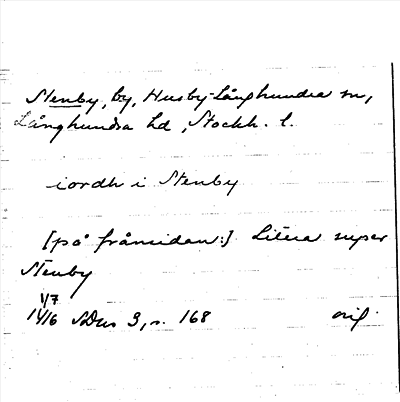 Stenby, by, Husby-Långhundra sn,
Långhundra hd, Stockh. l.
iordh i Stenby
[på frånsidan:] Litera super
Stenby
1/7
1416 SDns 3, s. 168 orig.